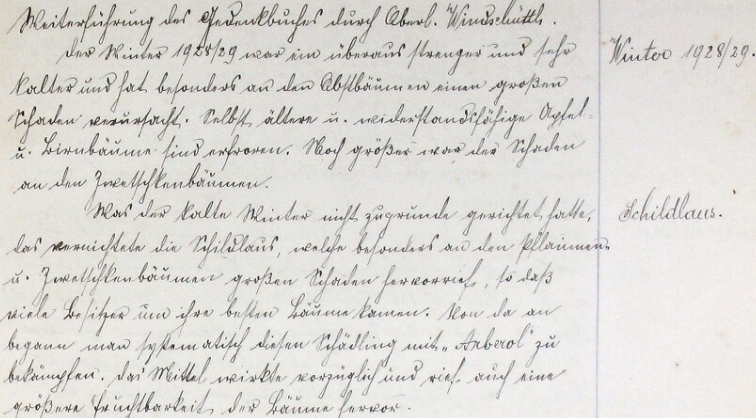 Weiterführung des Gedenkbuches durch Oberl. Windschüttl.
Der Winter 1928/29 war ein überaus strenger und sehr
Winter 1928/29.
kalter und hat besonders an den Obstbäumen einen großen
Schaden verursacht. Selbst ältere u. widerstandsfähige Apfel-
u. Birnbäume sind erfroren. Noch größer war der Schaden
an den Zwetschkenbäumen.
Was der kalte Winter nicht zugrunde gerichtet hatte,
Schildlaus.
das vernichtete die Schildlaus, welche besonders an den Pflaumen-
u. Zwetschkenbäumen großen Schaden hervorrief, so daß
viele Besitzer um ihre besten Bäume kamen. Von da an
begann man systematisch diesen Schädling mit „Arberol" zu
bekämpfen. Das Mittel wirkte vorzüglich und rief auch eine
größere Fruchtbarkeit der Bäume hervor.